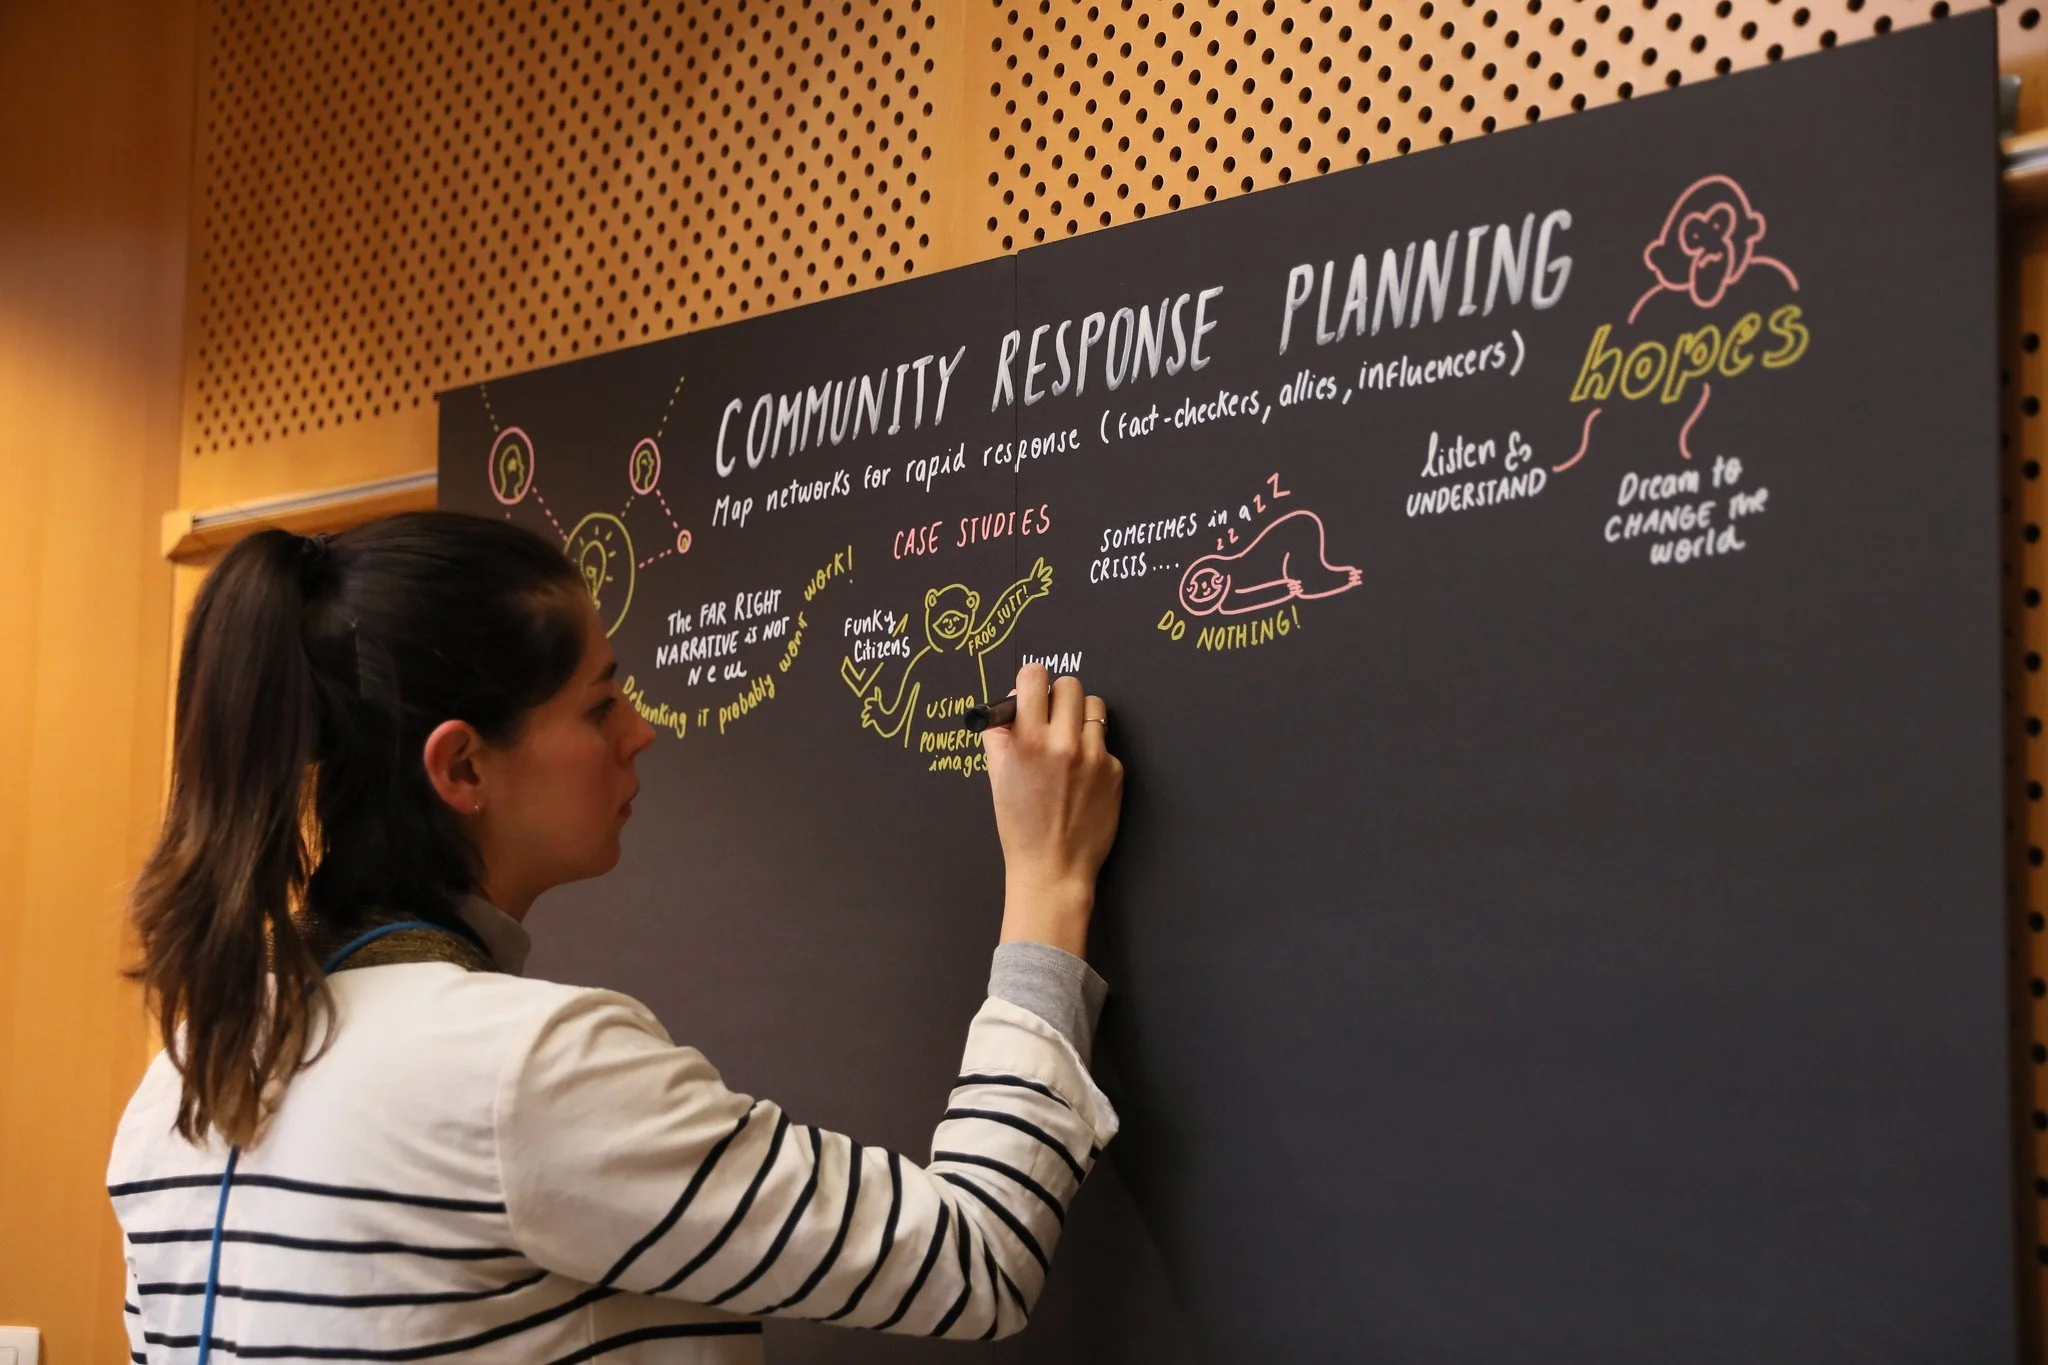 COMMUNITY RESPONSE PLANNING
Map networks for rapid response (fact-checkers, allies, influencers)
The FAR RIGHT
NARRATIVE is NOT
New
Debunking it probably won't work!
CASE STUDIES
Funky
Citizens
FROG SUIT!
using
POWERFU
images
HUMAN
SOMETIMES in a
CRISIS....
zzzzz
DO NOTHING!
hopes
listen &
UNDERSTAND
Dream to
CHANGE the
world